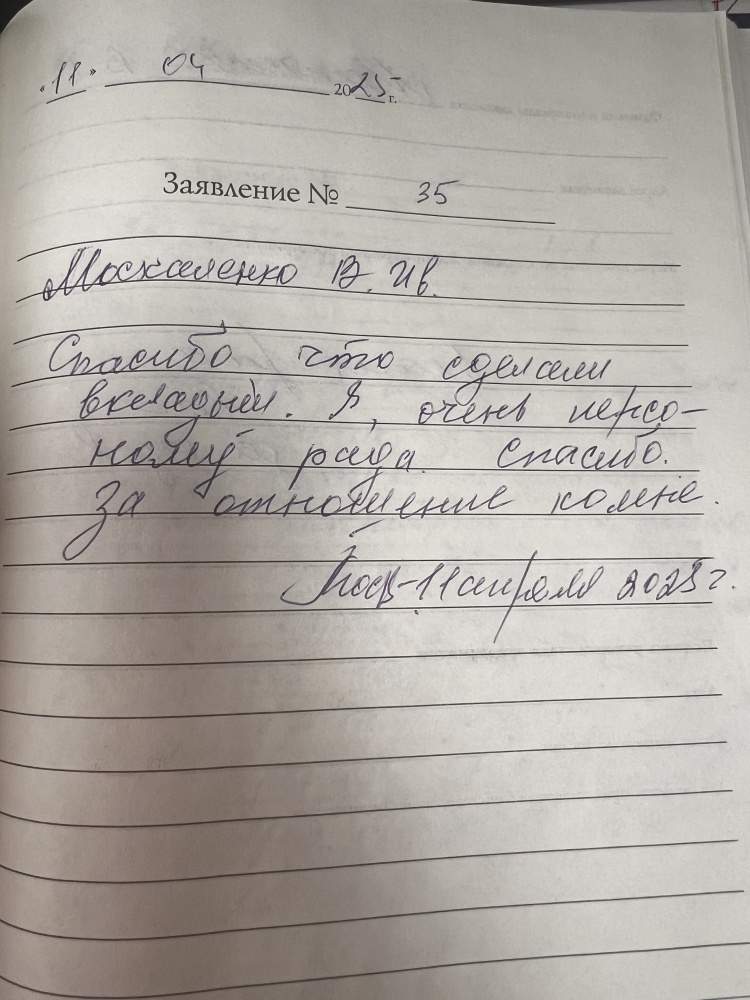 «11» 04 2025 г.
Заявление № 35
Москаленко В. Ив.
Спасибо что сделали
вкладыши. Я, очень персо-
налу рада. Спасибо.
За отношение комне.
11 апреля 2025 г.